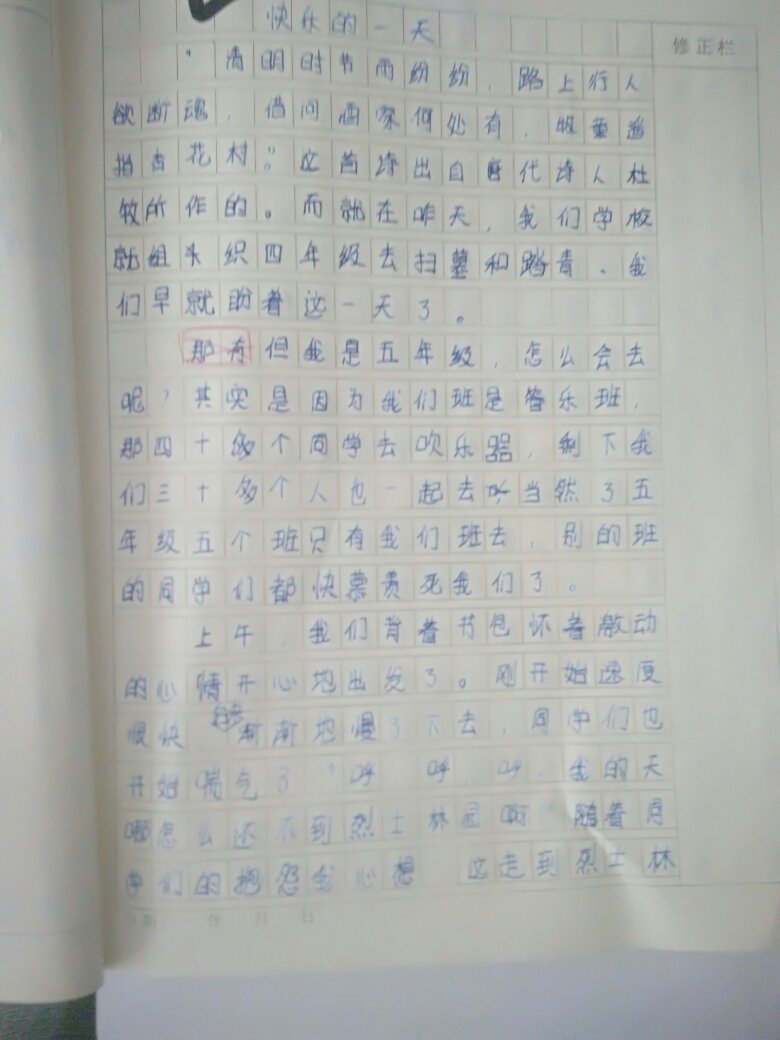 快乐的一天
修正栏
"清明时节雨纷纷，路上行人
欲断魂，借问酒家何处有，牧童遥
指杏花村。"这首诗出自唐代诗人杜
牧所作的。而就在昨天，我们学校
就组织四年级去扫墓和踏青。我
们早就盼着这一天了。
那有但我是五年级，怎么会去
呢？其实是因为我们班是管乐班，
那四十多个同学去吹乐器，剩下我
们三十多个人也一起去当然了五
年级五个班只有我们班去，别的班
的同学们都快慕责死我们了。
上午，我们背着书包怀着激动
的心情开心地出发了。刚开始速度
很快，渐渐地慢了下去，同学们也
开始喘气了"呼，呼，呼，我的天
哪怎么还不到烈士林园啊"随着同
学们的抱怨我心想 这走到烈士林
日期： 年 月 日